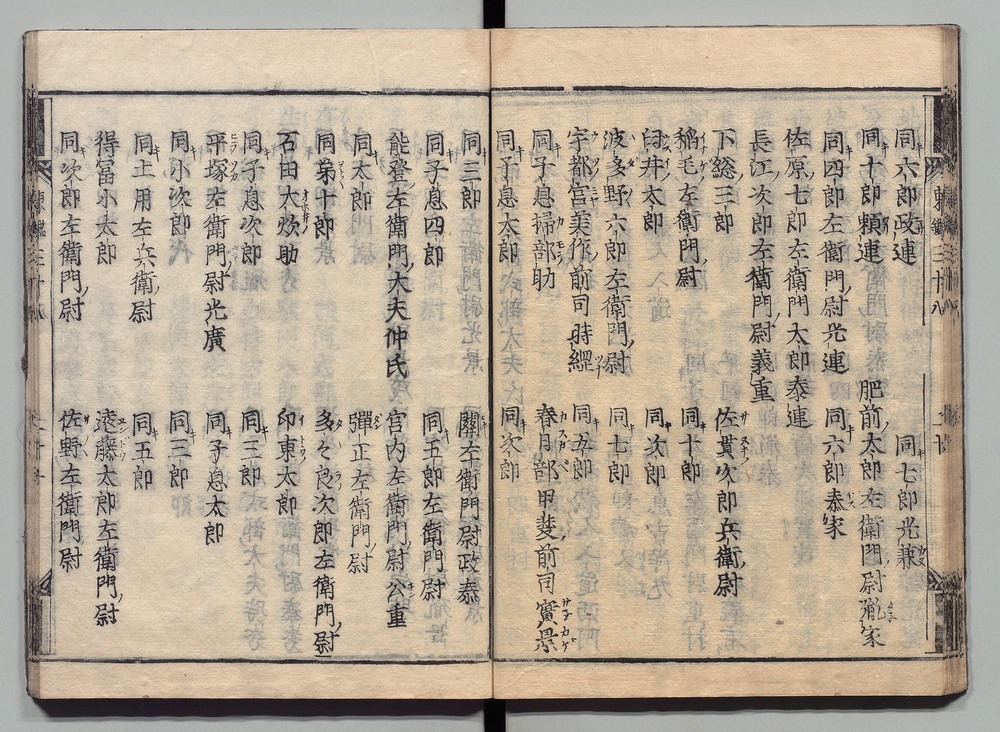 同六郎政連　同七郎光兼
同十郎頼連　肥前太郎左衛門尉胤家
同四郎左衛門尉光連　同六郎泰家
佐原七郎左衛門太郎泰連
長江次郎左衛門尉義重
下総三郎　佐貫次郎兵衛尉
稲毛左衛門尉　同十郎
臼井太郎　同次郎
波多野六郎左衛門尉　同七郎
宇都宮美作前司時綱　同五郎
同子息掃部助　春日部甲斐前司實景
同子息太郎　同次郎
同三郎　關左衛門尉政泰
同子息四郎　同五郎左衛門尉
能登左衛門大夫仲氏　宮内左衛門尉公重
同太郎　彈正左衛門尉
同弟十郎　多々良次郎左衛門尉
石田大炊助　印東太郎
同子息次郎　同三郎
平塚左衛門尉光廣　同子息太郎
同小次郎　同三郎
同土用左兵衛尉　同五郎
得富小太郎　遠藤太郎左衛門尉
同次郎左衛門尉　佐野左衛門尉